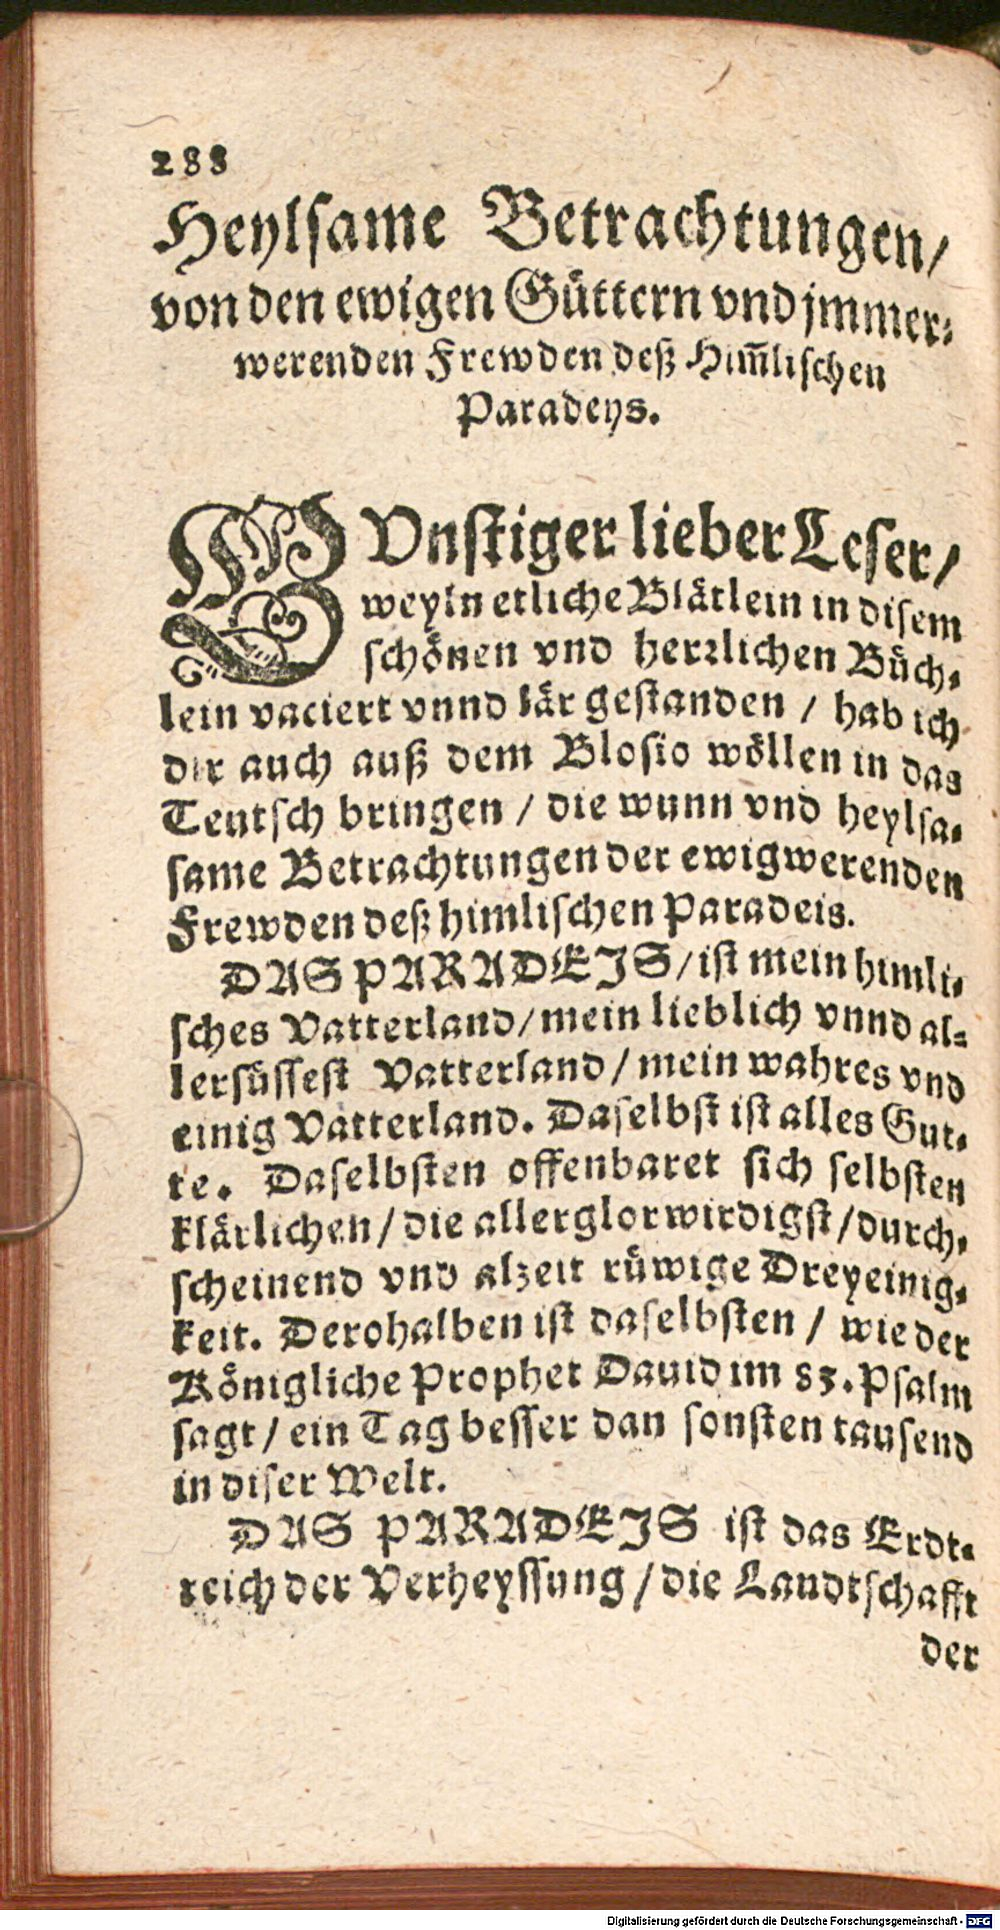 288
Heylsame Betrachtungen/
von den ewigen Güttern vnd jmmer-
werenden Frewden deß Him̃lischen
Paradeys.
GVnstiger lieber Leser/
weyln etliche Blätlein in disem
schönen vnd herrlichen Büch-
lein vaciert vnnd lär gestanden / hab ich
dir auch auß dem Blosio wöllen in das
Teutsch bringen / die wunn vnd heylsa-
same Betrachtungen der ewigwerenden
Frewden deß himlischen Paradeis.
DAS PARADEJS/ist mein himli-
sches Vatterland/mein lieblich vnnd al-
lersüssest Vatterland/mein wahres vnd
einig Vatterland. Daselbst ist alles Gut-
te. Daselbsten offenbaret sich selbsten
klärlichen/die allerglorwirdigst/durch-
scheinend vnd alzeit rüwige Dreyeinig-
keit. Derohalben ist daselbsten / wie der
Königliche Prophet Dauid im 83. Psalm
sagt/ein Tag besser dan sonsten tausend
in diser Welt.
DAS PARADEJS ist das Erdt-
reich der Verheyssung/die Landtschafft
der
Digitalisierung gefördert durch die Deutsche Forschungsgemeinschaft - DFG